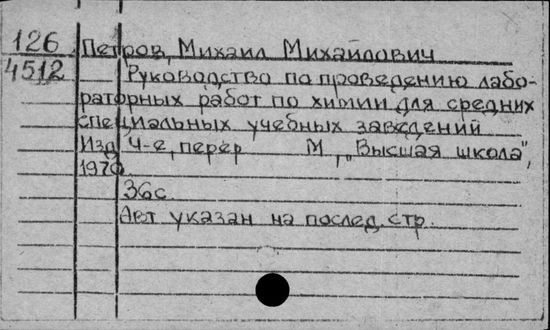 126 Петров, Михаил Михайлович
4512 Руководство по проведению лабо-
раторных работ по химии для средних
специальных учебных заведений
Изд 4-е, перер М, „Высшая школа",
1970.
36с.
Авт указан на послед. стр.